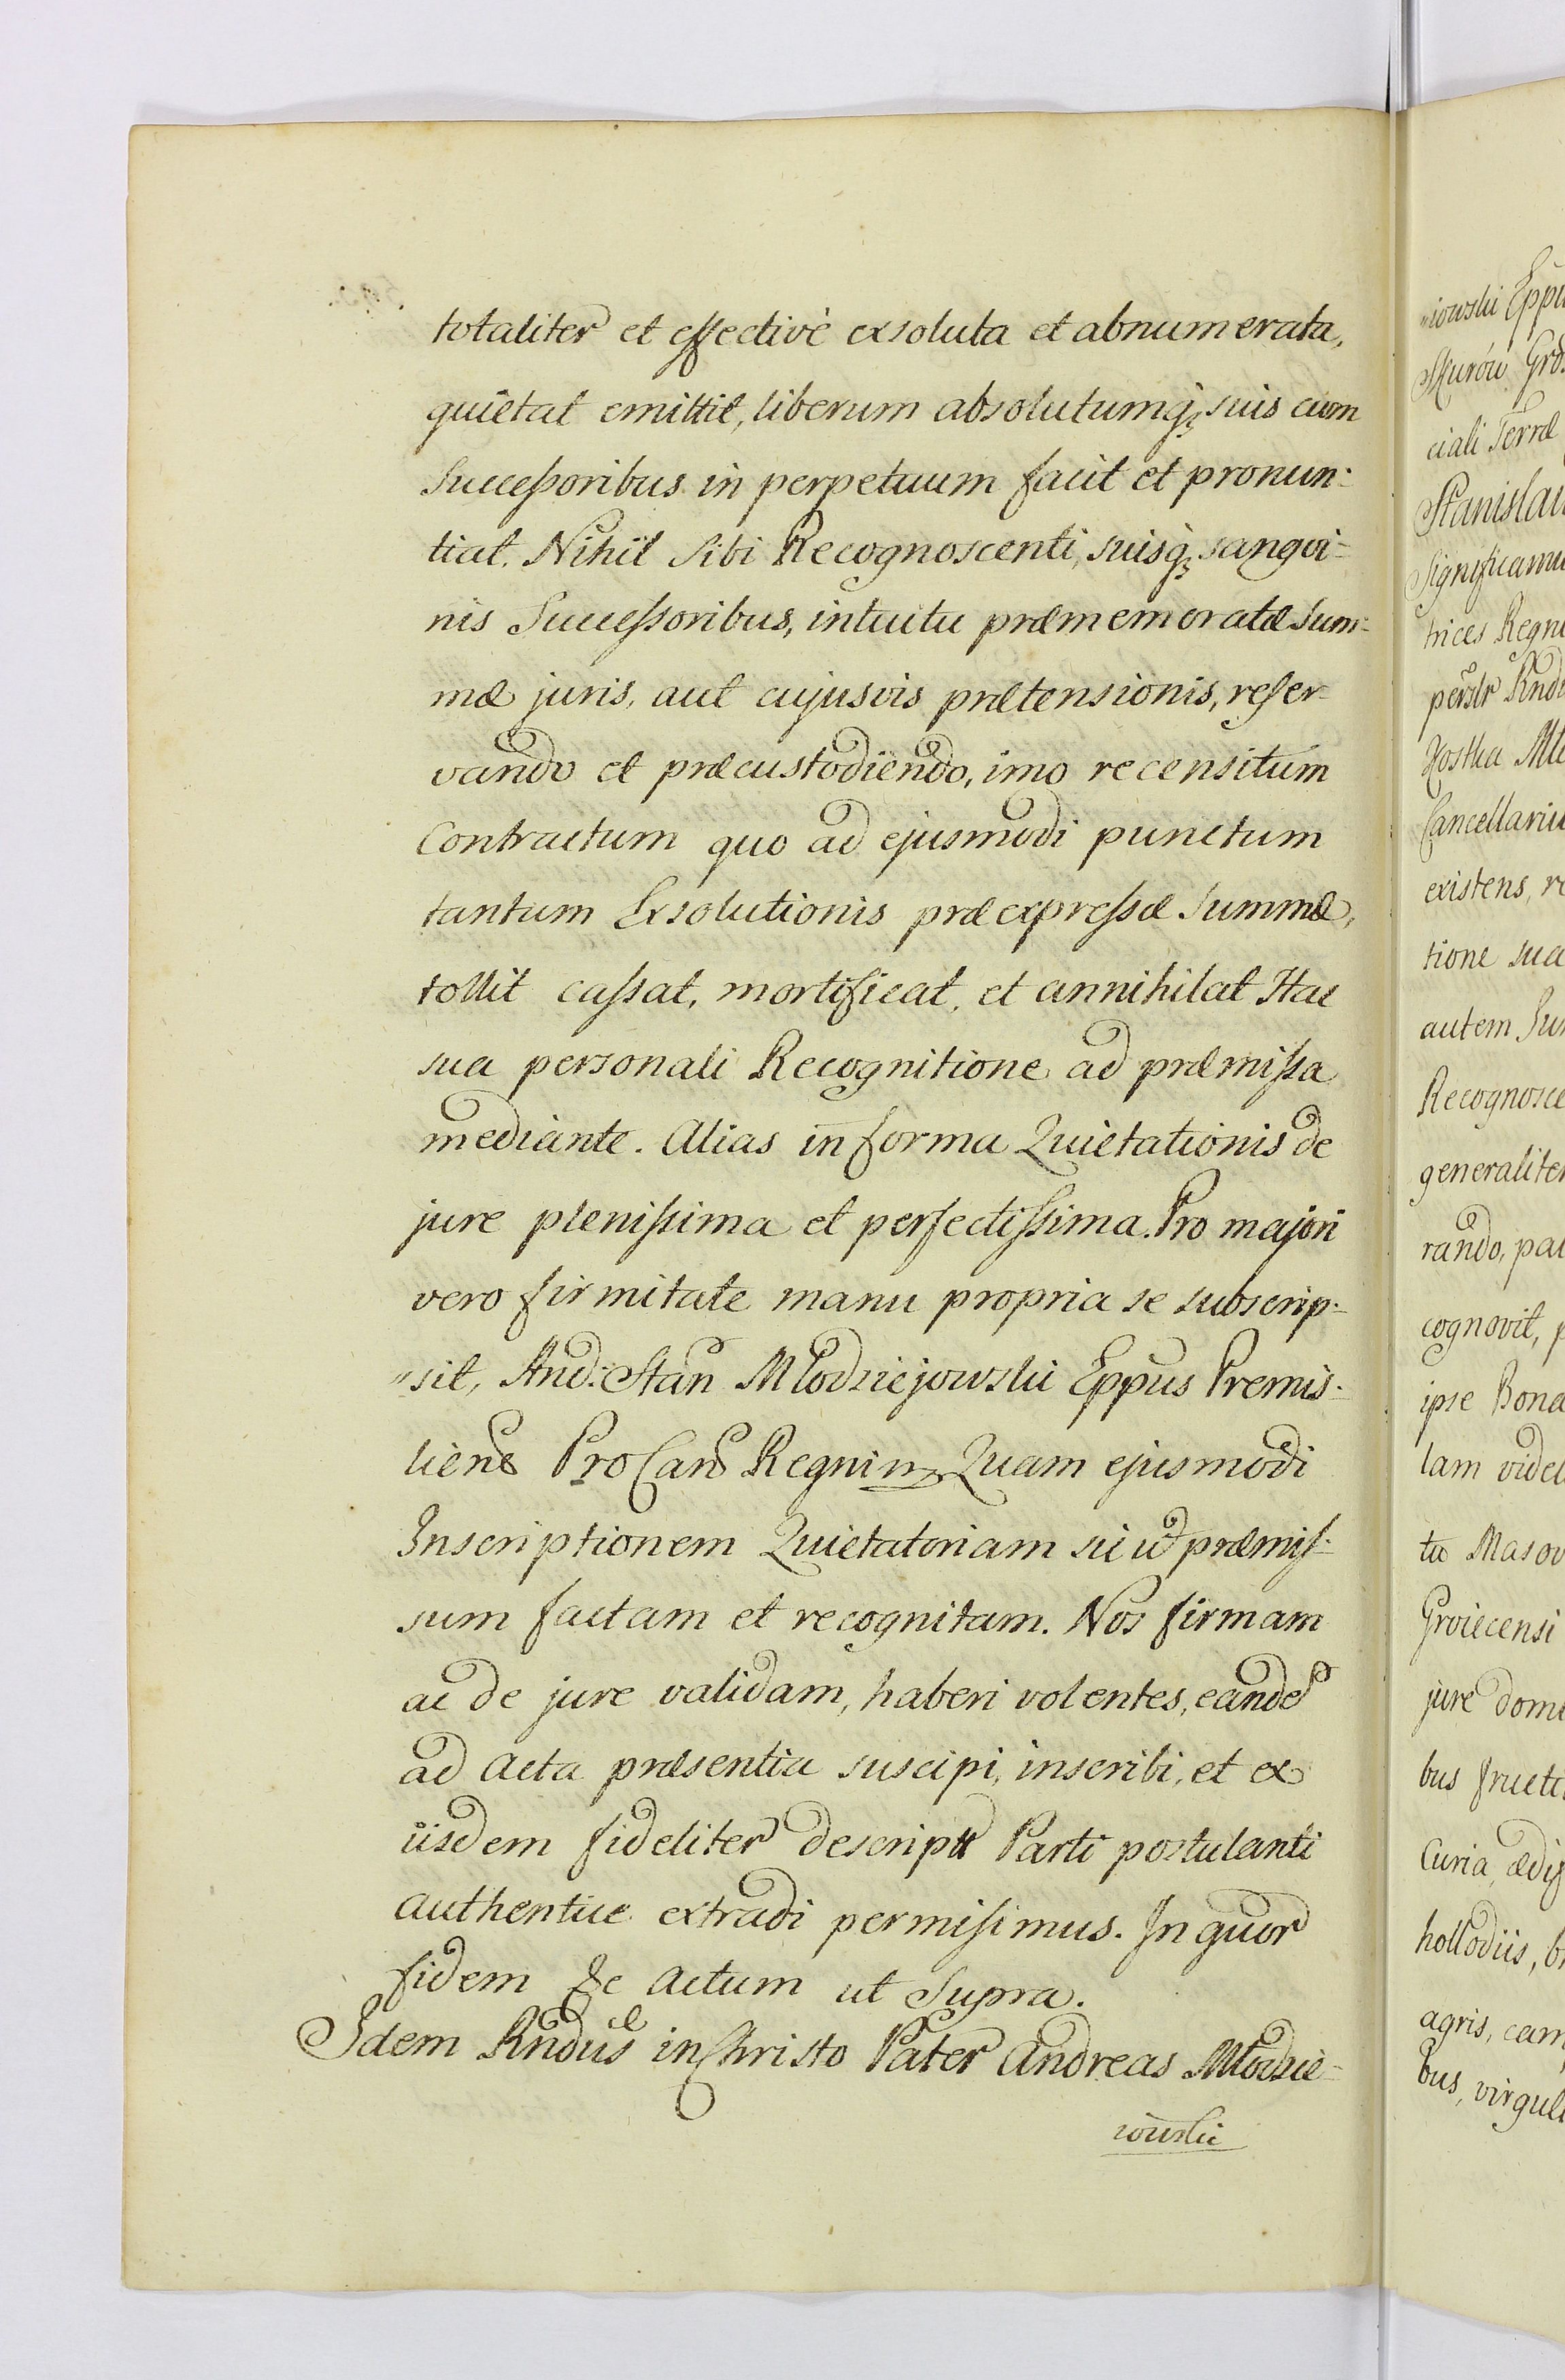 totaliter et effectivè exsoluta et abnumerata,
quietat emittit, liberum absolutumq̨ suis cum
Successoribus in perpetuum facit et pronun-
tiat. Nihil sibi Recognoscenti, suisq̨ sangvi-
nis Successoribus, intuitu præmemoratæ Sum-
mæ juris, aut cujusvis prætensionis, reser-
vando et præcustodiendo, imo recensitum
Contractum quo ad ejusmodi punctum
tantum Exsolutionis præexpressæ Summæ,
tollit cassat, mortificat, et annihilat Hac
sua personali Recognitione ad præmissa
mediante. Alias in forma Quietationis de
jure plenissima et perfectissima. Pro majori
vero firmitate manu propria se subscrip-
"sit, And: Stan Młodziejowski Eppus Premis-
liens ProCanc Regni mp Quam ejusmodi
Inscriptionem Quietatoriam sicut præmis-
sum factam et recognitam. Nos firmam
ac de jure validam, haberi volentes, eande
ad Acta præsentia suscipi, inscribi, et ex
iisdem fideliter descripti Parti postulanti
authentice extradi permisimus. In quor
fidem &c Actum ut Supra.
Idem Rndus in Christo Pater Andreas Młodzie-
iowski
"iowski Eppu
ciali Terræ
Stanislau
Significamu
trices Regni
Rndi
Kostka Mło
Cancellariu
existens, re
tione sua
autem Su
Recognosce
generaliter
rando, pal
cognovit, p
ipse Bona
lam videl
tu Masov
Groiecensi
jure domi
bus fructi
Curia, ædif
hollodiis, b
agris, cam
bus, virgul